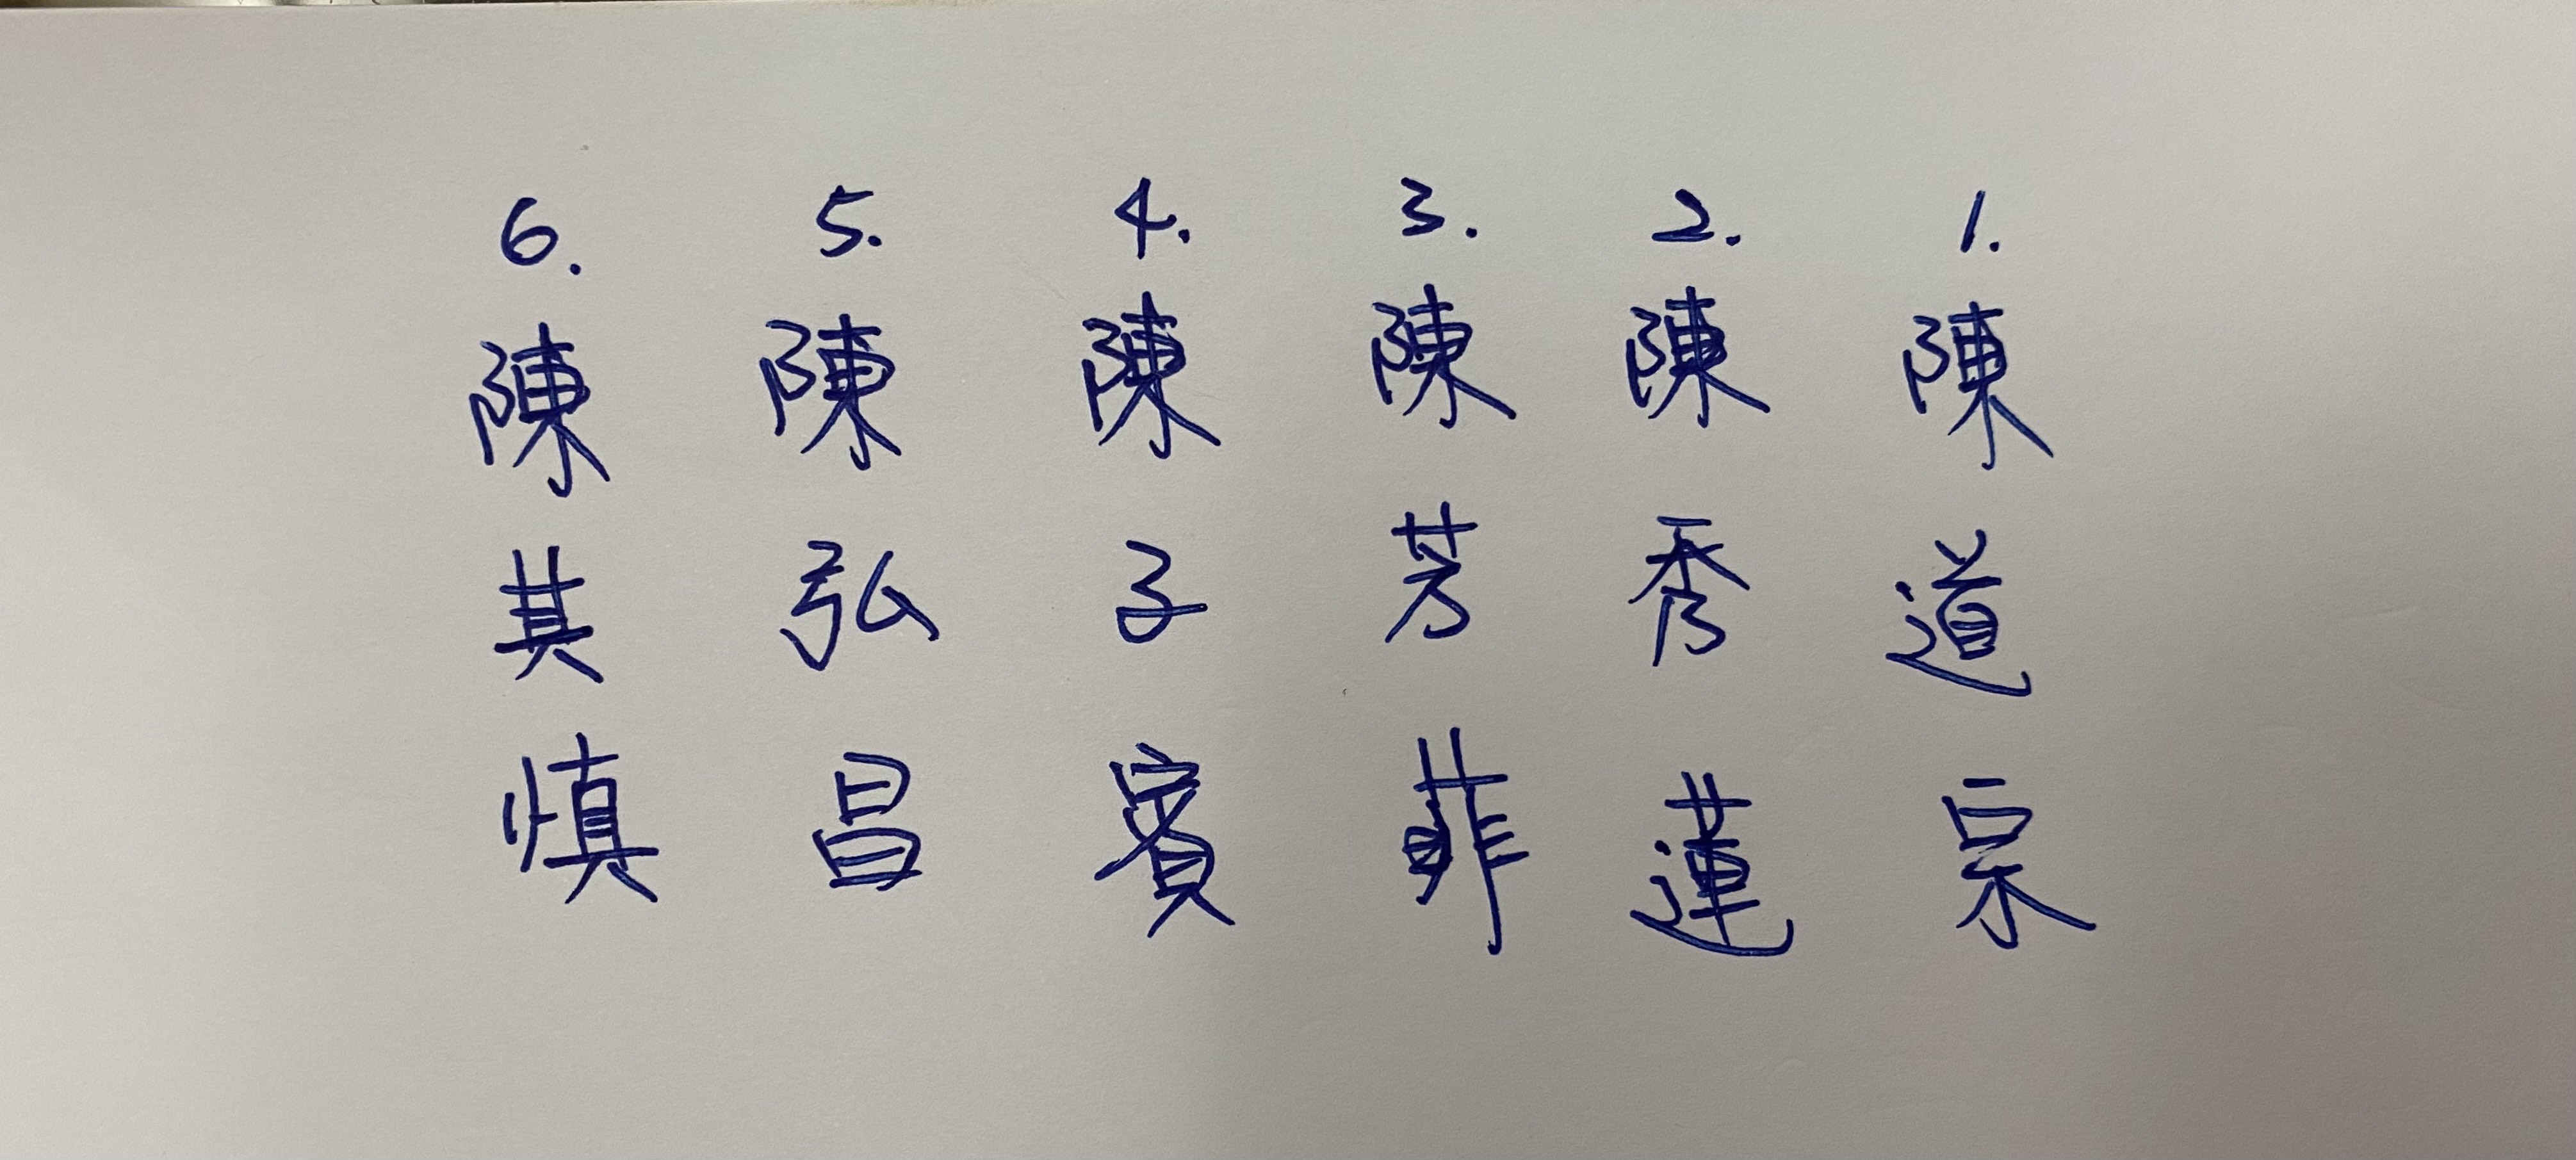 1.陳道宗
2.陳秀蓮
3.陳芳菲
4.陳子賓
5.陳弘昌
6.陳其慎